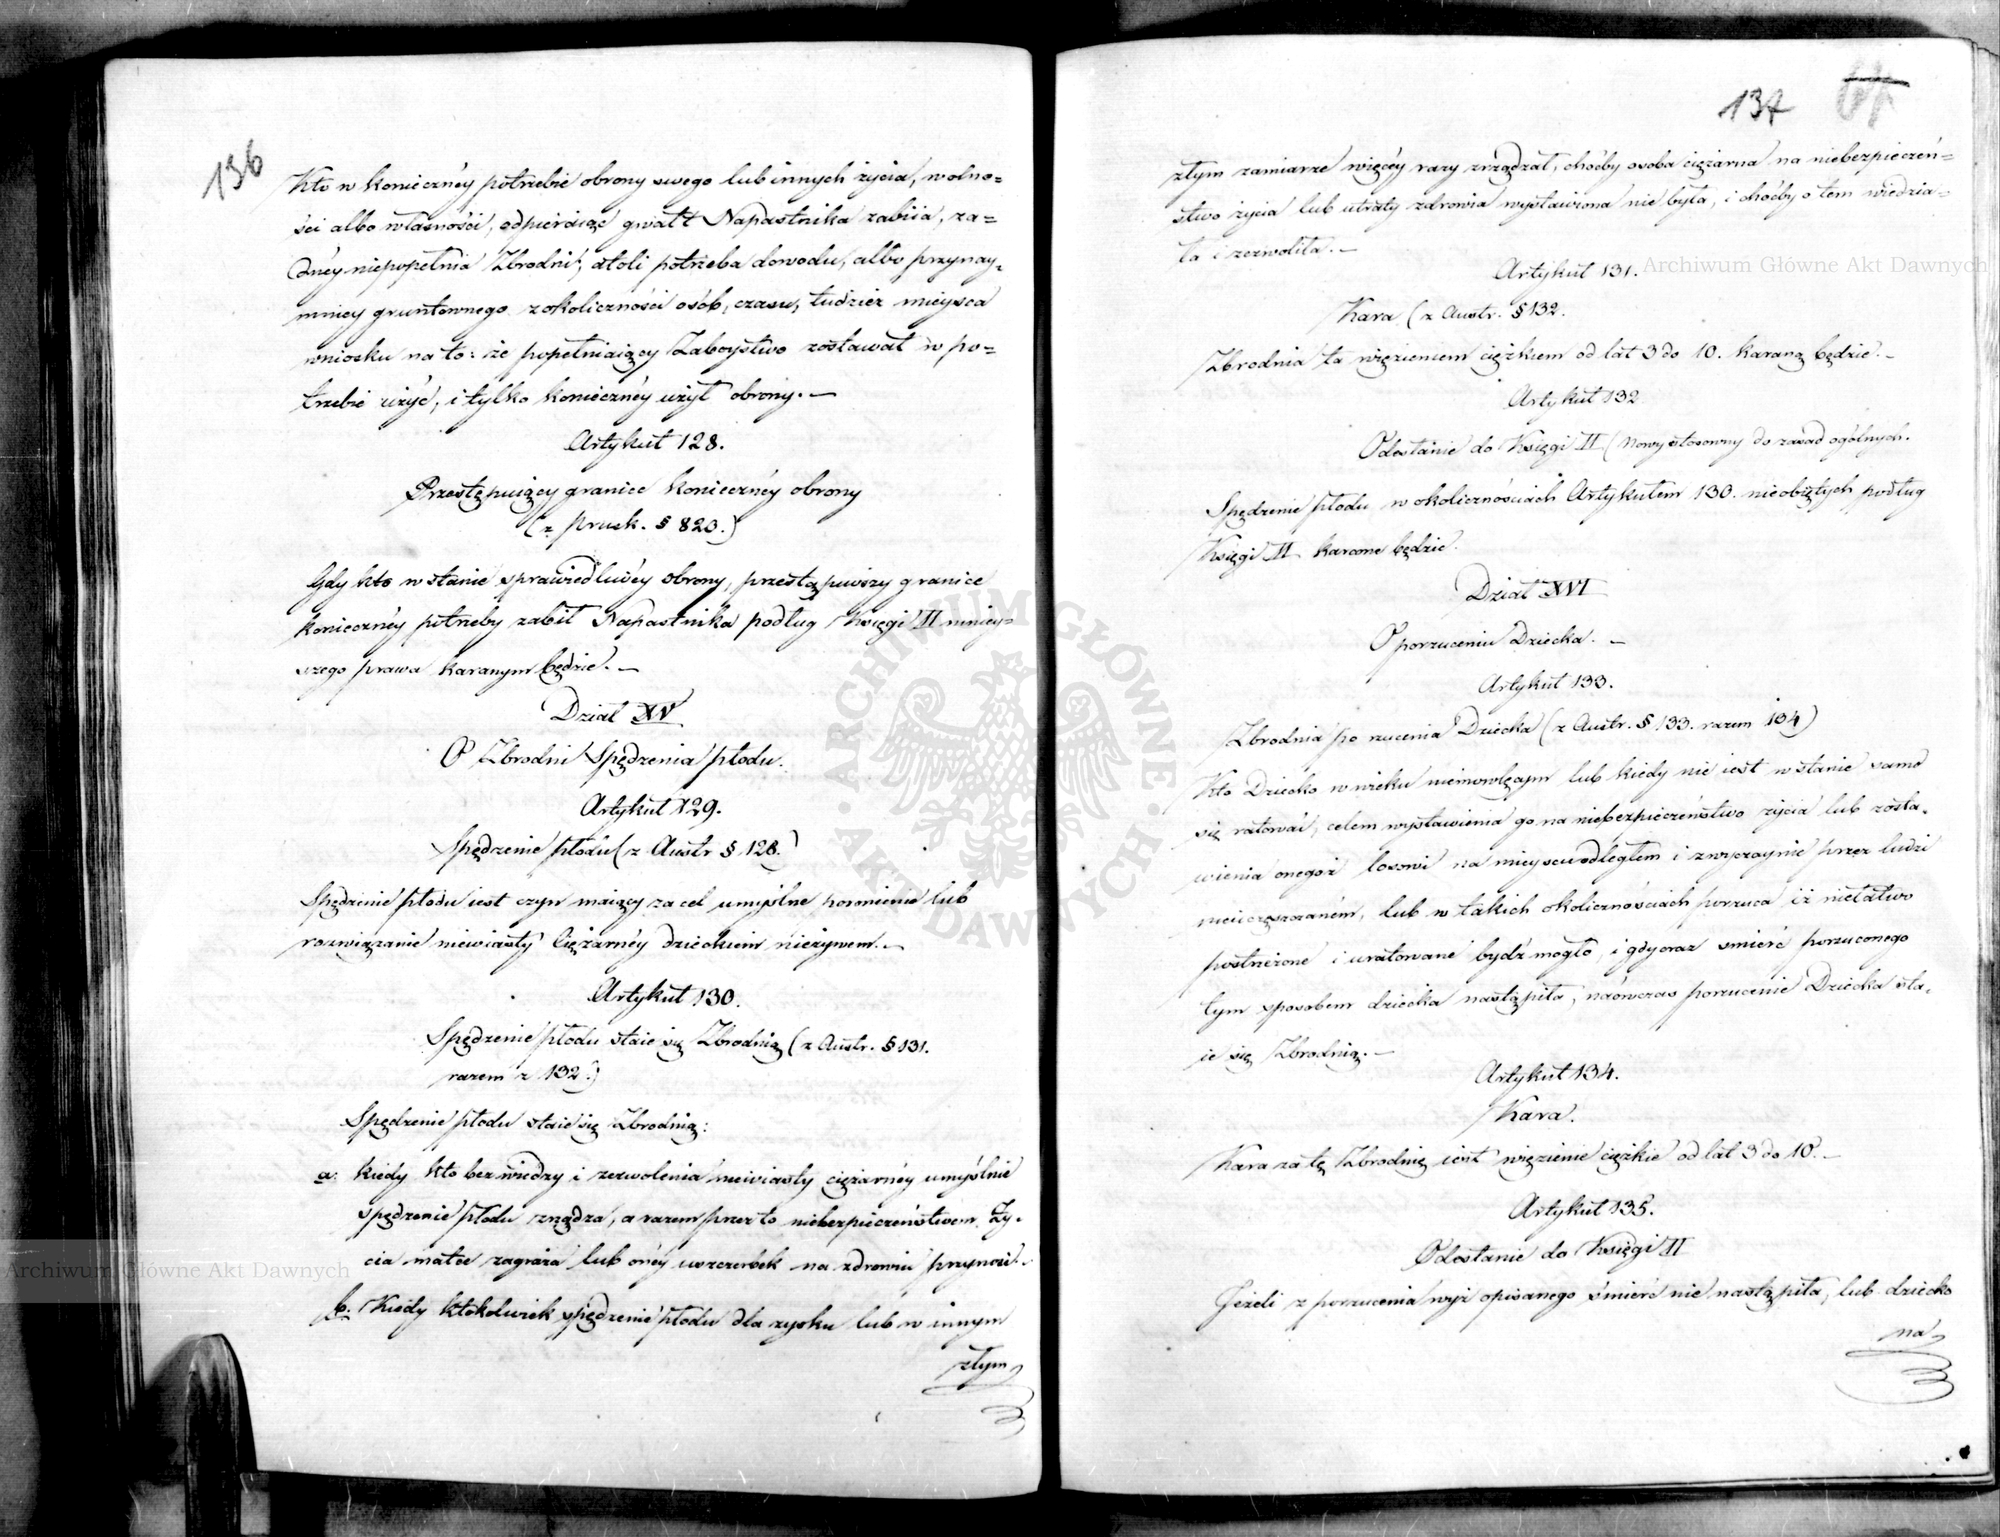 136
Kto w konieczney potrzebie obrony swego lub innych życia, wolno=
ści albo własności, odpieraiąc gwałt Napastnika zabiia, ża=
dney niepopełnia Zbrodni, atoli potrzeba dowodu, albo przynay=
mniey gruntownego z okoliczności osób, czasu, tudzież mieysca
wniosku na to: że popełniaiący Zaboystwo zostawał w po=
trzebie użyć, i tylko konieczney użył obrony. —
Artykuł 128.
Przestępuiący granice konieczney obrony
(z prusk. § 820.)
Gdy kto w stanie sprawiedliwey obrony, przestąpiwszy granice
konieczney potrzeby zabił Napastnika podług Księgi II niniey=
szego prawa karanym będzie. —
Dział XV
O Zbrodni Spędzenia płodu.
Artykuł 129.
Spędzenie płodu (z Austr § 128.)
Spędzenie płodu iest czyn maiący za cel umyślne poronienie lub
rozwiązanie niewiasty Ciężarney dzieckiem nieżywem. —
Artykuł 130.
Spędzenie płodu staie się Zbrodnią (z Austr. § 131.
razem z 132.)
Spędzenie płodu staie się Zbrodnią:
a. kiedy kto bez wiedzy i zezwolenia niewiasty ciężarney umyślnie
spędzenie płodu zrządza, a razem przez to niebezpieczeństwem Ży=
cia matce zagraża lub oney uszczerbek na zdrowiu przynosi. —
b. Kiedy ktokolwiek spędzenie płodu dla zysku lub w innym
złym
137
złym zamiarze więcey razy zrządzał, choćby osoba ciężarna na niebezpieczeń=
stwo życia lub utraty zdrowia wystawiona nie była, i choćby o tem wiedzia=
ła i zezwoliła. —
Artykuł 131.
Kara (z Austr. § 132.
Zbrodnia ta więzieniem ciężkiem od lat 3 do 10. karaną będzie. —
Artykuł 132
Odesłanie do Księgi II (Nowy stosowny do zasad ogólnych.
Spędzenie płodu w okolicznościach Artykułem 130. nieobiętych podług
Księgi II karane będzie.
Dział XVI
O porzuceniu Dziecka. —
Artykuł 133.
Zbrodnia porzucenia Dziecka (z Austr. § 133. razem 134)
Kto Dziecko w wieku niemowlęcym lub kiedy nie iest w stanie samo
się ratować, celem wystawienia go na niebezpieczeństwo życia lub zosta=
wienia onegoż losowi na mieyscu odległem i zwyczaynie przez ludzi
nieuczęszczanem, lub w takich okolicznościach porzuca iż niełatwo
postrzeżone i uratowane bydź mogło, i gdy oraz śmierć porzuconego
tym sposobem dziecka nastąpiła, naówczas porzucenie Dziecka sta=
ie się Zbrodnią. —
Artykuł 134.
Kara.
Kara za tę Zbrodnię iest więzienie ciężkie od lat 3 do 10. —
Artykuł 135.
Odesłanie do Księgi II
Jeżeli z porzucenia wyż opisanego śmierć nie nastąpiła, lub dziecko
na
Archiwum Główne Akt Dawnych
Archiwum Główne Akt Dawnych
ARCHIWUM GŁÓWNE · AKT DAWNYCH ·